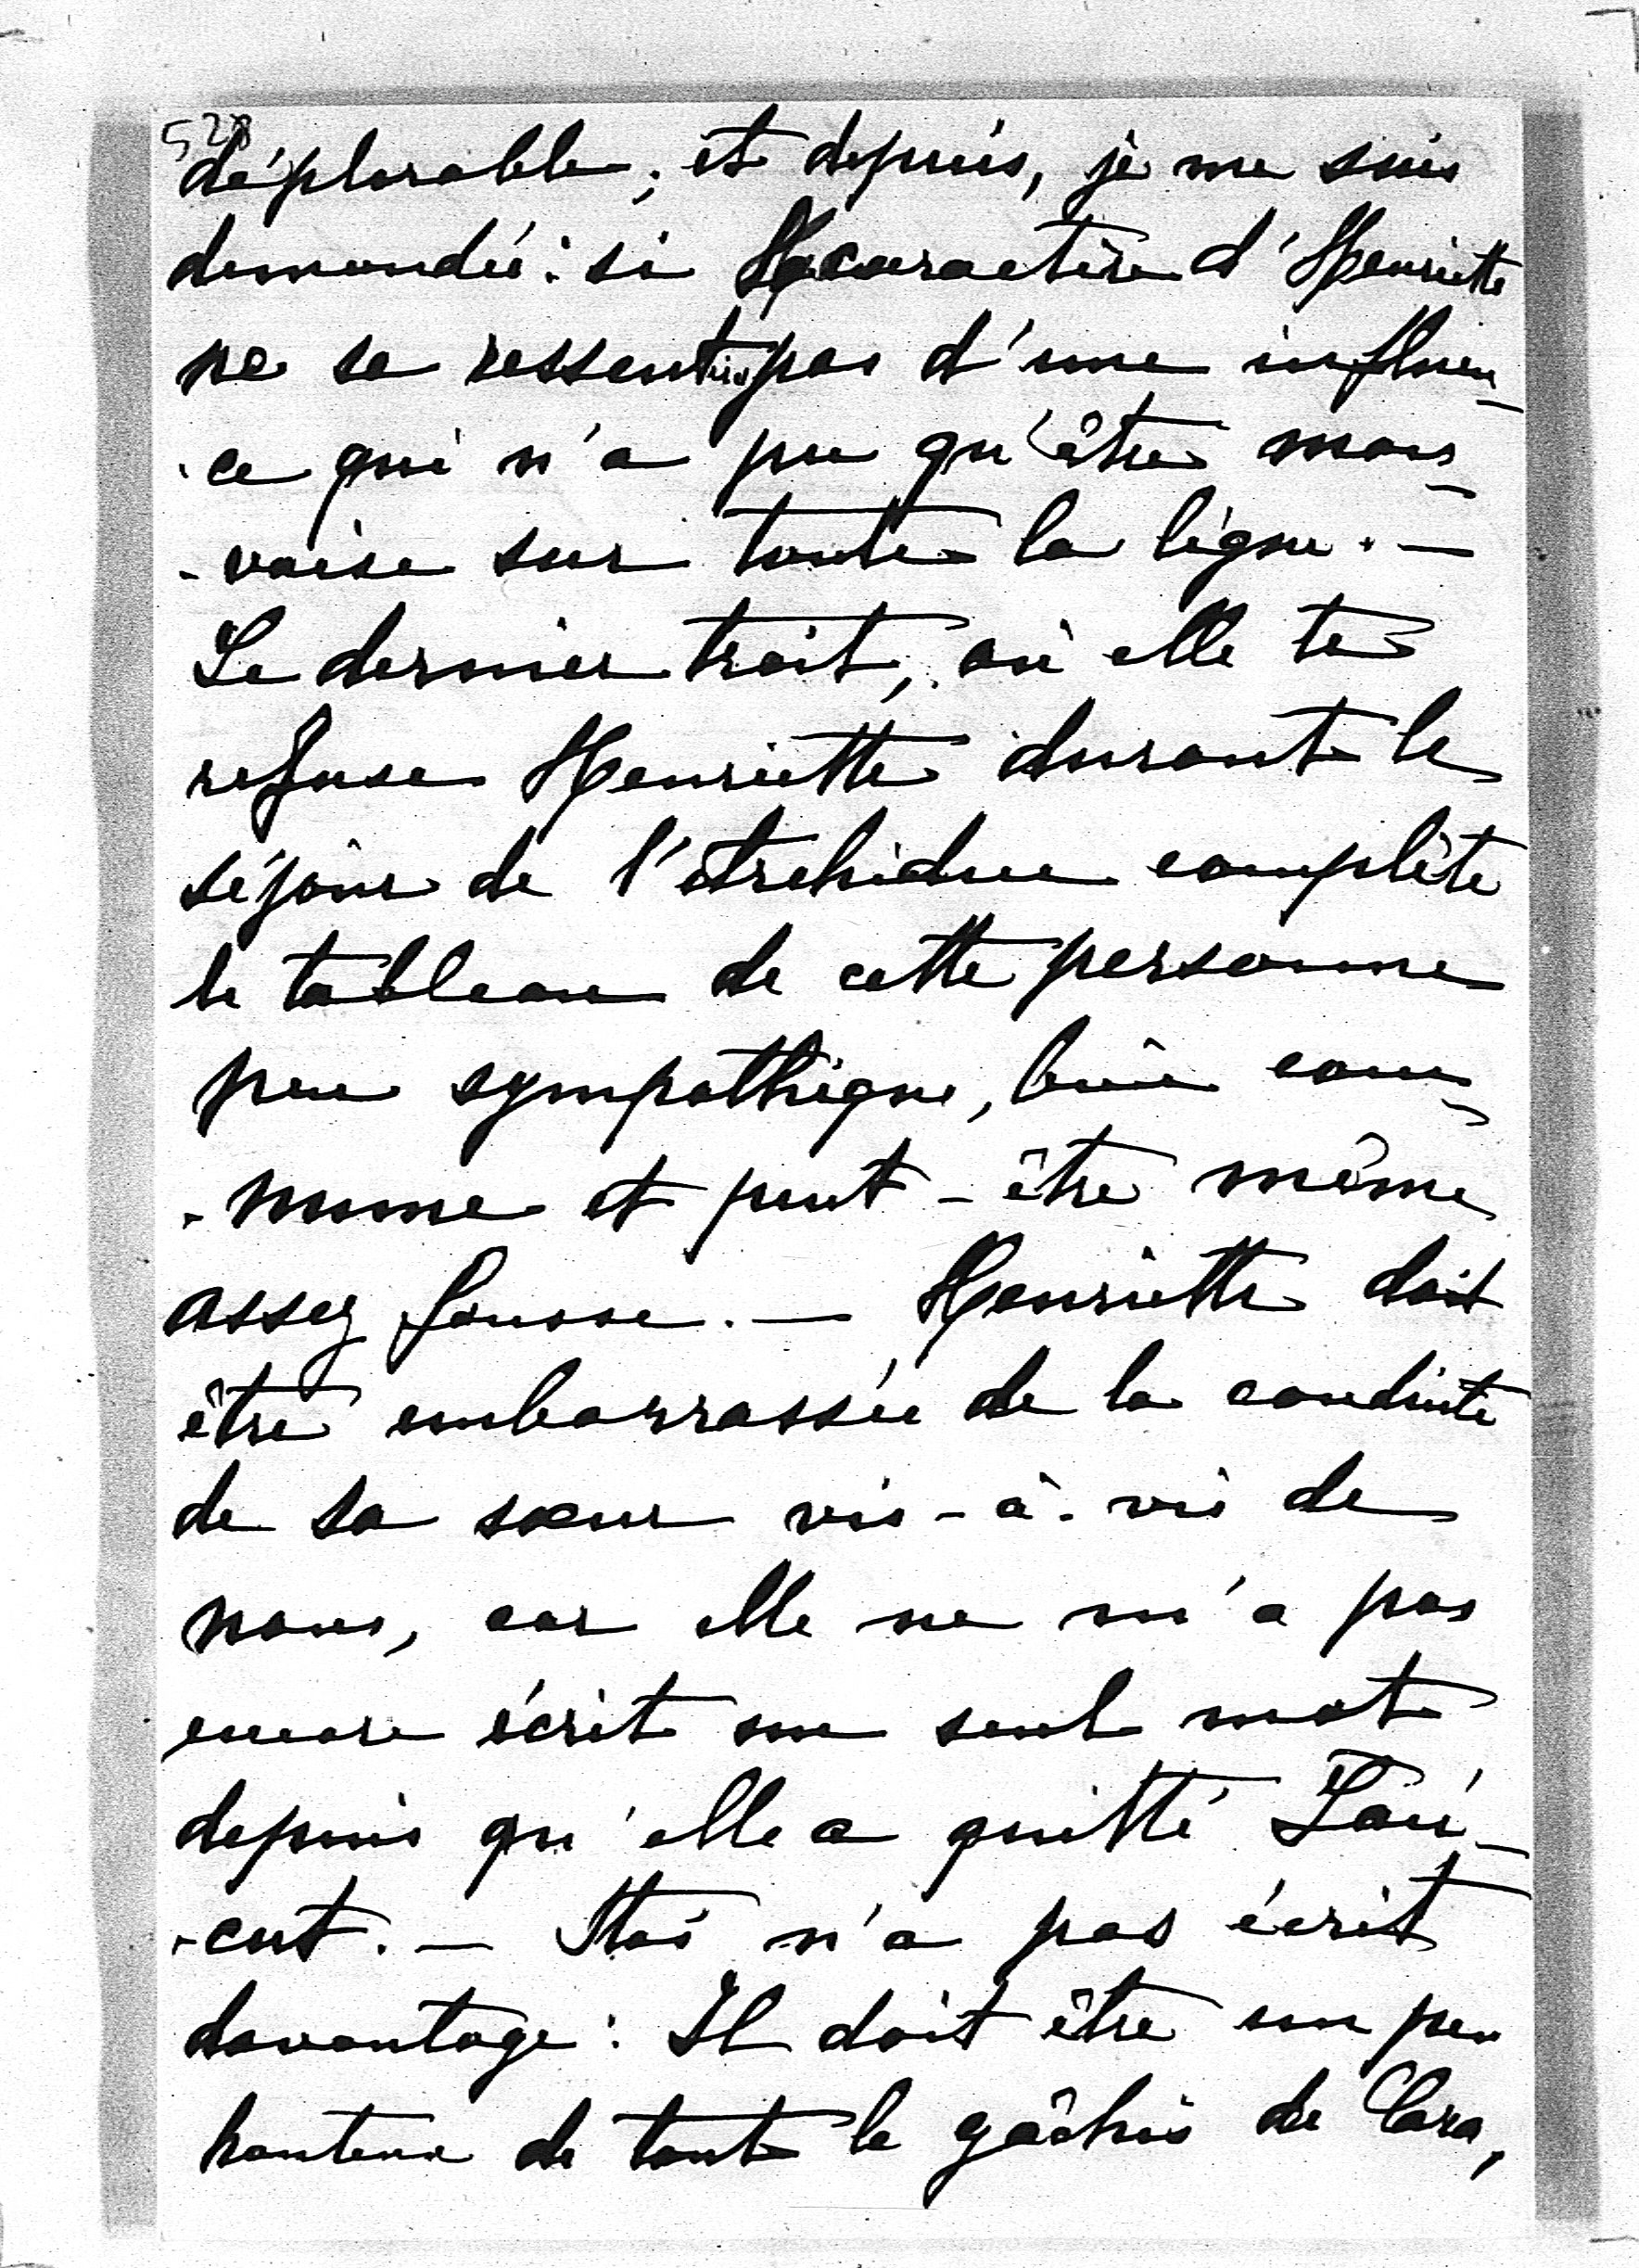 528
déplorable; et depuis, je me suis
demandée: si le caractère d'Henriette
ne se ressentira pas d'une influen-
-ce qui n'a pu qu'être mau-
-vaise sur toute la ligne. —
Le dernier trait, où elle te
refuse Henriette durant le
séjour de l'Archiduc complète
le tableau de cette personne
peu sympathique, bien com-
-mune et peut-être même
assez fausse. — Henriette doit
être embarrassée de la conduite
de sa sœur vis-à-vis de
nous, car elle ne m'a pas
encore écrit un seul mot
depuis qu'elle a quitté
-cut. — n'a pas écrit
davantage: Il doit être un peu
honteux de tout le gâchis de Clara,